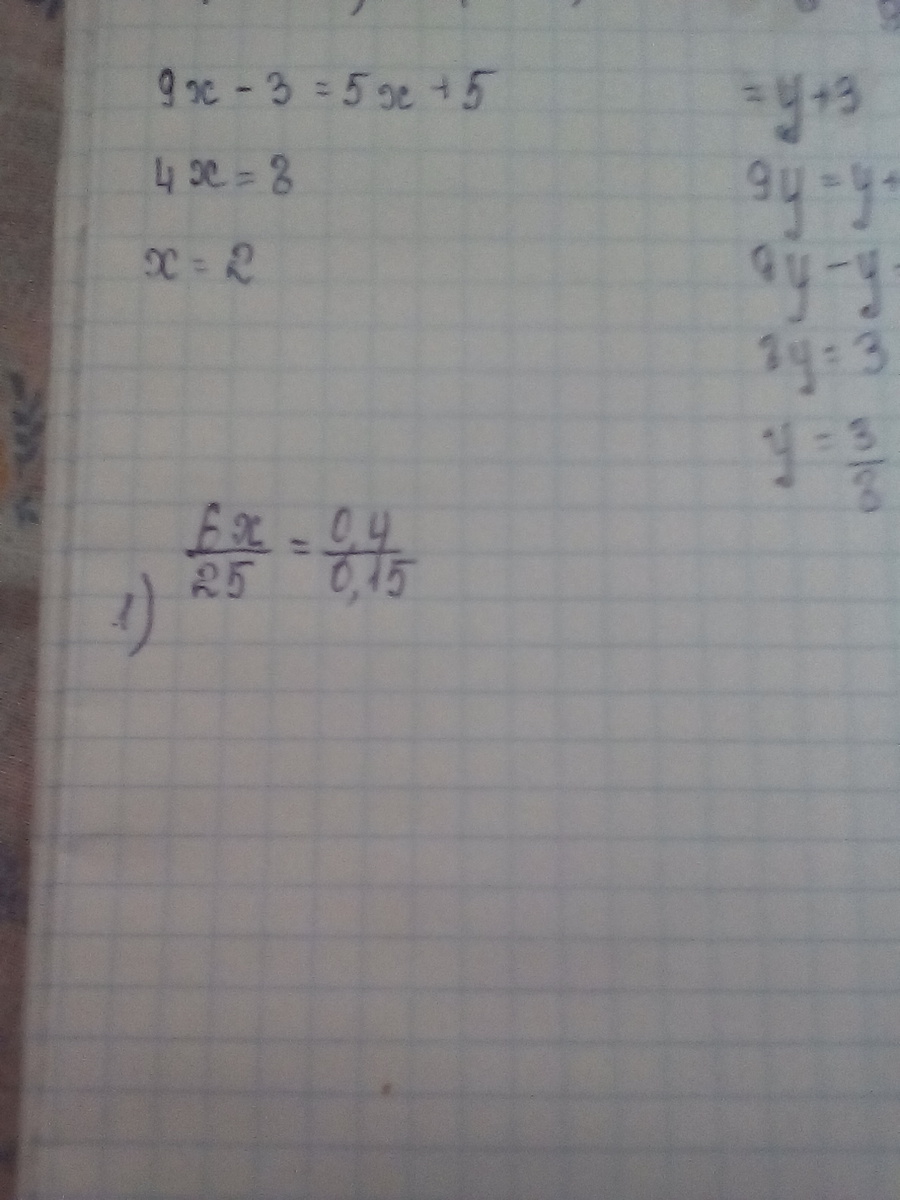 9x - 3 = 5x + 5
4x = 8
x = 2
= y + 3
9y = y +
9y - y
8y = 3
y = 3/8
1) 6x/25 = 0,4/0,15